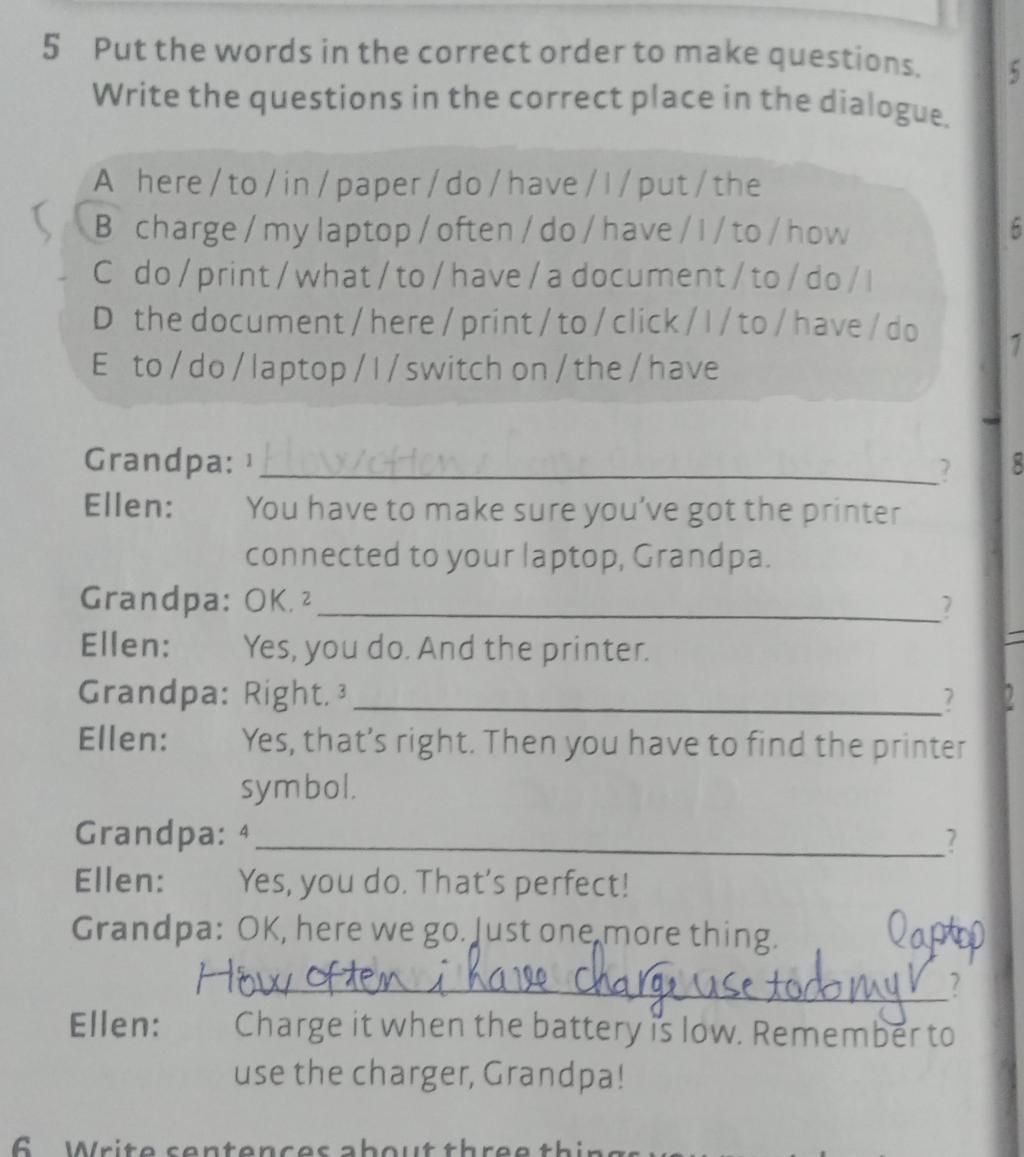 5 Put the words in the correct order to make questions.
Write the questions in the correct place in the dialogue.
A here / to / in / paper / do / have / I / put / the
B charge / my laptop / often / do / have / I / to / how
C do / print / what / to / have / a document / to / do / I
D the document / here / print / to / click / I / to / have / do
E to / do / laptop / I / switch on / the / have
Grandpa: 1 How often ?
Ellen: You have to make sure you've got the printer
connected to your laptop, Grandpa.
Grandpa: OK. 2 ?
Ellen: Yes, you do. And the printer.
Grandpa: Right. 3 ?
Ellen: Yes, that's right. Then you have to find the printer
symbol.
Grandpa: 4 ?
Ellen: Yes, you do. That's perfect!
Grandpa: OK, here we go. Just one more thing.
laptop
How often i have charge use to do my ?
Ellen: Charge it when the battery is low. Remember to
use the charger, Grandpa!
6 Write sentences about three things
5
6
7
8
2